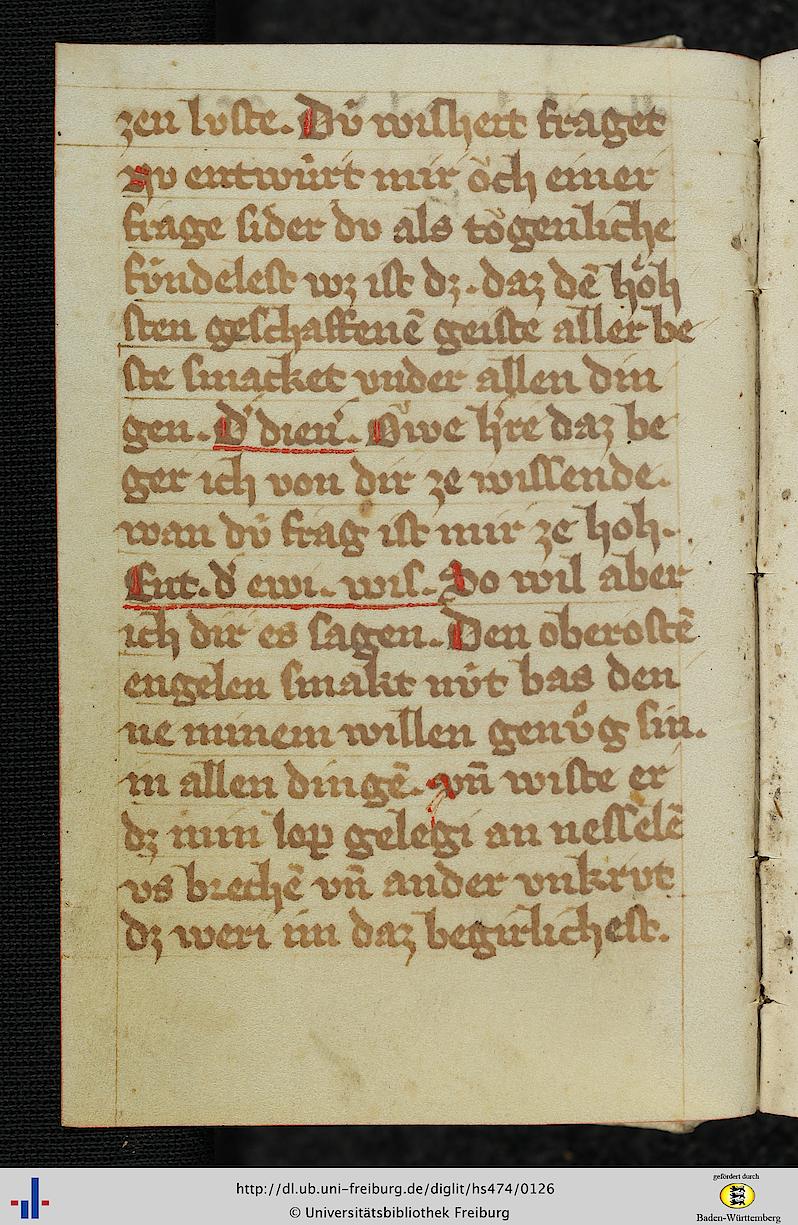 zen lvste. Dv̊ wisheit fraget
Nv entwúrt mir ŏch einer
frage sider dv als tŏgenliche
fv́ndelest wz ist dz. daz dē hŏh
sten geschaffenē geiste aller be
ste smacket vnder allen din
gen. D᾽ dien᾽. Ǒwe h᾽re daz be
ger ich von dir ze wissende.
wan dv́ frag ist mir ze hoh.
Ent. d᾽ ewi. wis. So wil aber
ich dir es sagen. Den oberostē
engelen smakt nv́t bas den
ne minem willen genv̊g sin.
in allen dingē. vn̄ wiste er
dz min lop gelegi an nesselē
vs brechē vn̄ ander vnkrvt
dz weri im daz begirlichest.
http://dl.ub.uni-freiburg.de/diglit/hs474/0126
© Universitätsbibliothek Freiburg
gefördert durch
Baden-Württemberg